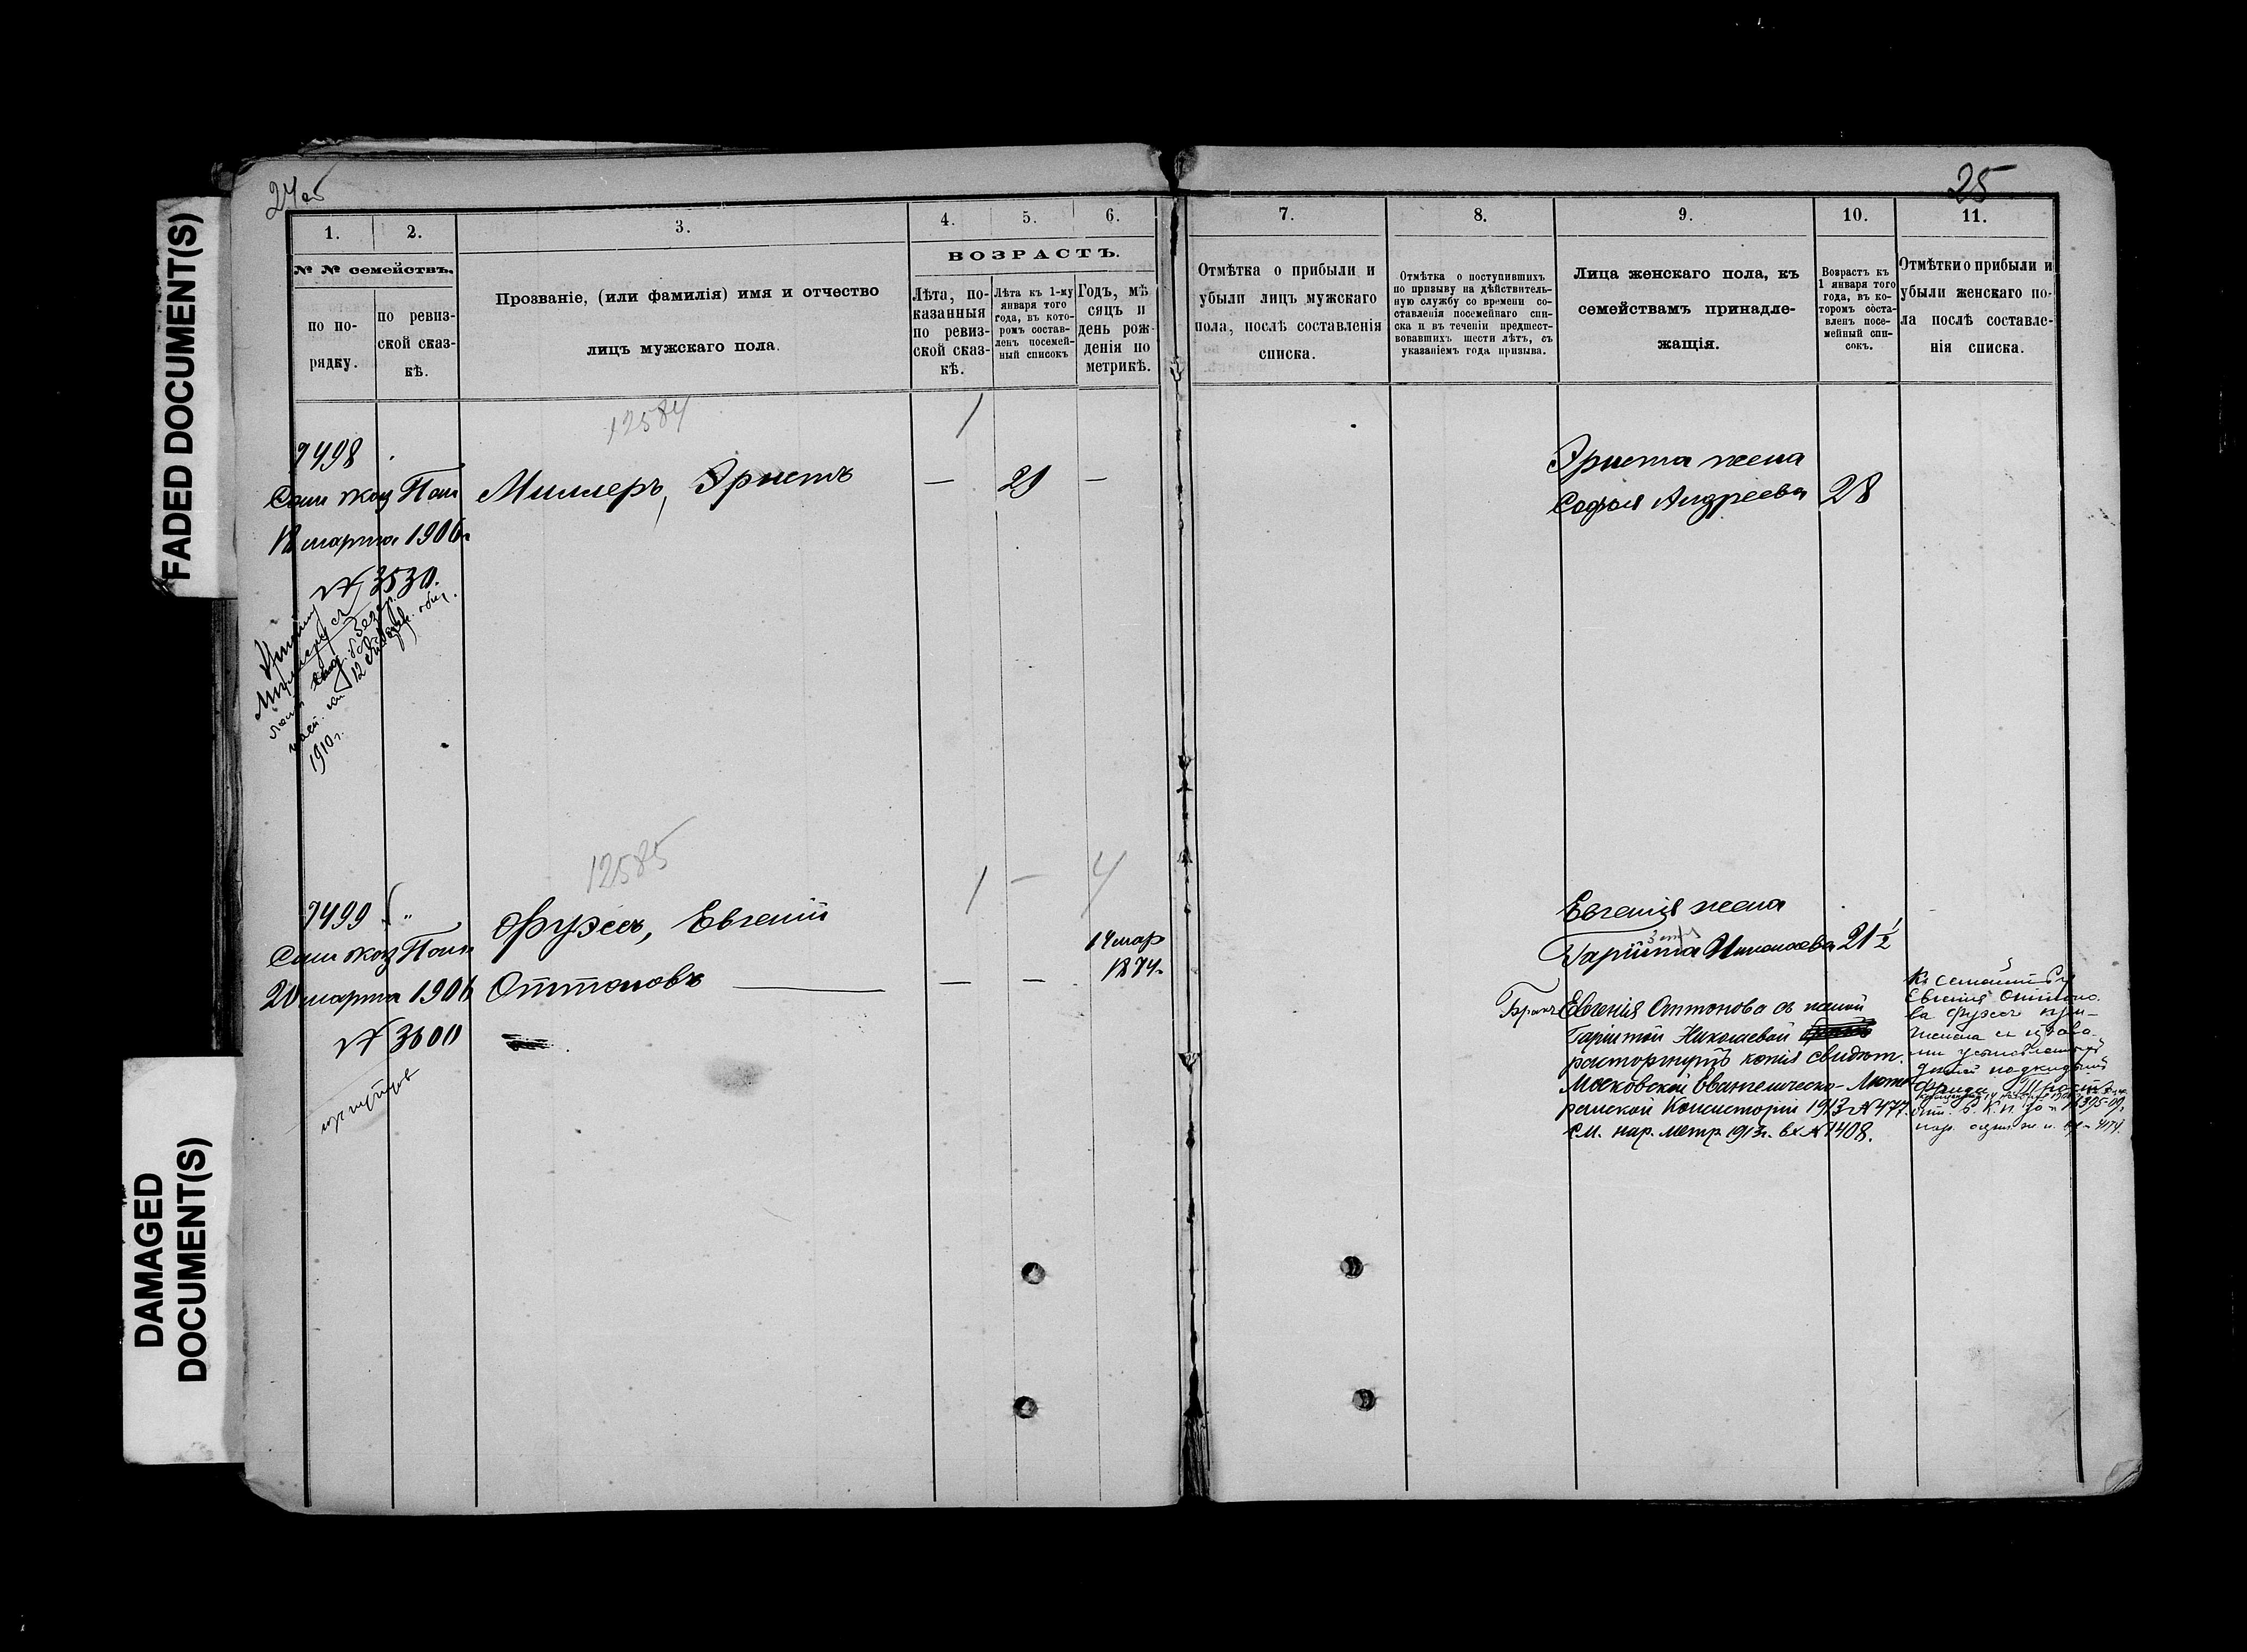 FADED DOCUMENT(S)
DAMAGED
DOCUMENT(S)
24об
1.
2.
3.
4.
5.
6.
№ № семействъ.
по по-
рядку.
по ревиз-
ской сказ-
кѣ.
Прозваніе, (или фамилія) имя и отчество
лицъ мужскаго пола.
ВОЗРАСТЪ.
Лѣта, по-
казанныя
по ревиз-
ской сказ-
кѣ.
Лѣта къ 1-му
января того
года, въ кото-
ромъ состав-
ленъ посемей-
ный списокъ
Годъ, мѣ
сяцъ и
день рож-
денія по
метрикѣ.
12584
1
9498
Миллеръ, Эрнстъ
— 29 —
18 марта 1906г
№ 3530.
1910 г.
12585
1 — 4
9499 "
Фуксъ, Евгеній
14 мар
1874г
20 марта 1906
Оттоновъ
— —
№ 3600
25
7.
8.
9.
10.
11.
Отмѣтка о прибыли и
убыли лицъ мужскаго
пола, послѣ составленія
списка.
Отмѣтка о поступившихъ
по призыву на дѣйствитель-
ную службу со времени со-
ставленія посемейнаго спи-
ска и въ теченіи предшест-
вовавшихъ шести лѣтъ, съ
указаніемъ года призыва.
Лица женскаго пола, къ
семействамъ принадле-
жащія.
Возрастъ къ
1 января того
года, въ ко-
торомъ соста-
вленъ посе-
мейный спи-
сокъ.
Отмѣтки о прибыли и
убыли женскаго по-
ла послѣ составле-
нія списка.
Эрнста жена
Софья Андреева 28
Евгенія жена
Гаріета Николаева 21 1/2
Бракъ Евгенія Оттонова съ женой
Гаріетой Николаевой
расторгнутъ копія свидѣт.
Московской Евангелическо-Люте
ранской Консисторіи 1913 № 477.
см. нар. метр. 1913г. вх № 1408.
Евгенія Оттоно-
ва Фуксъ при-